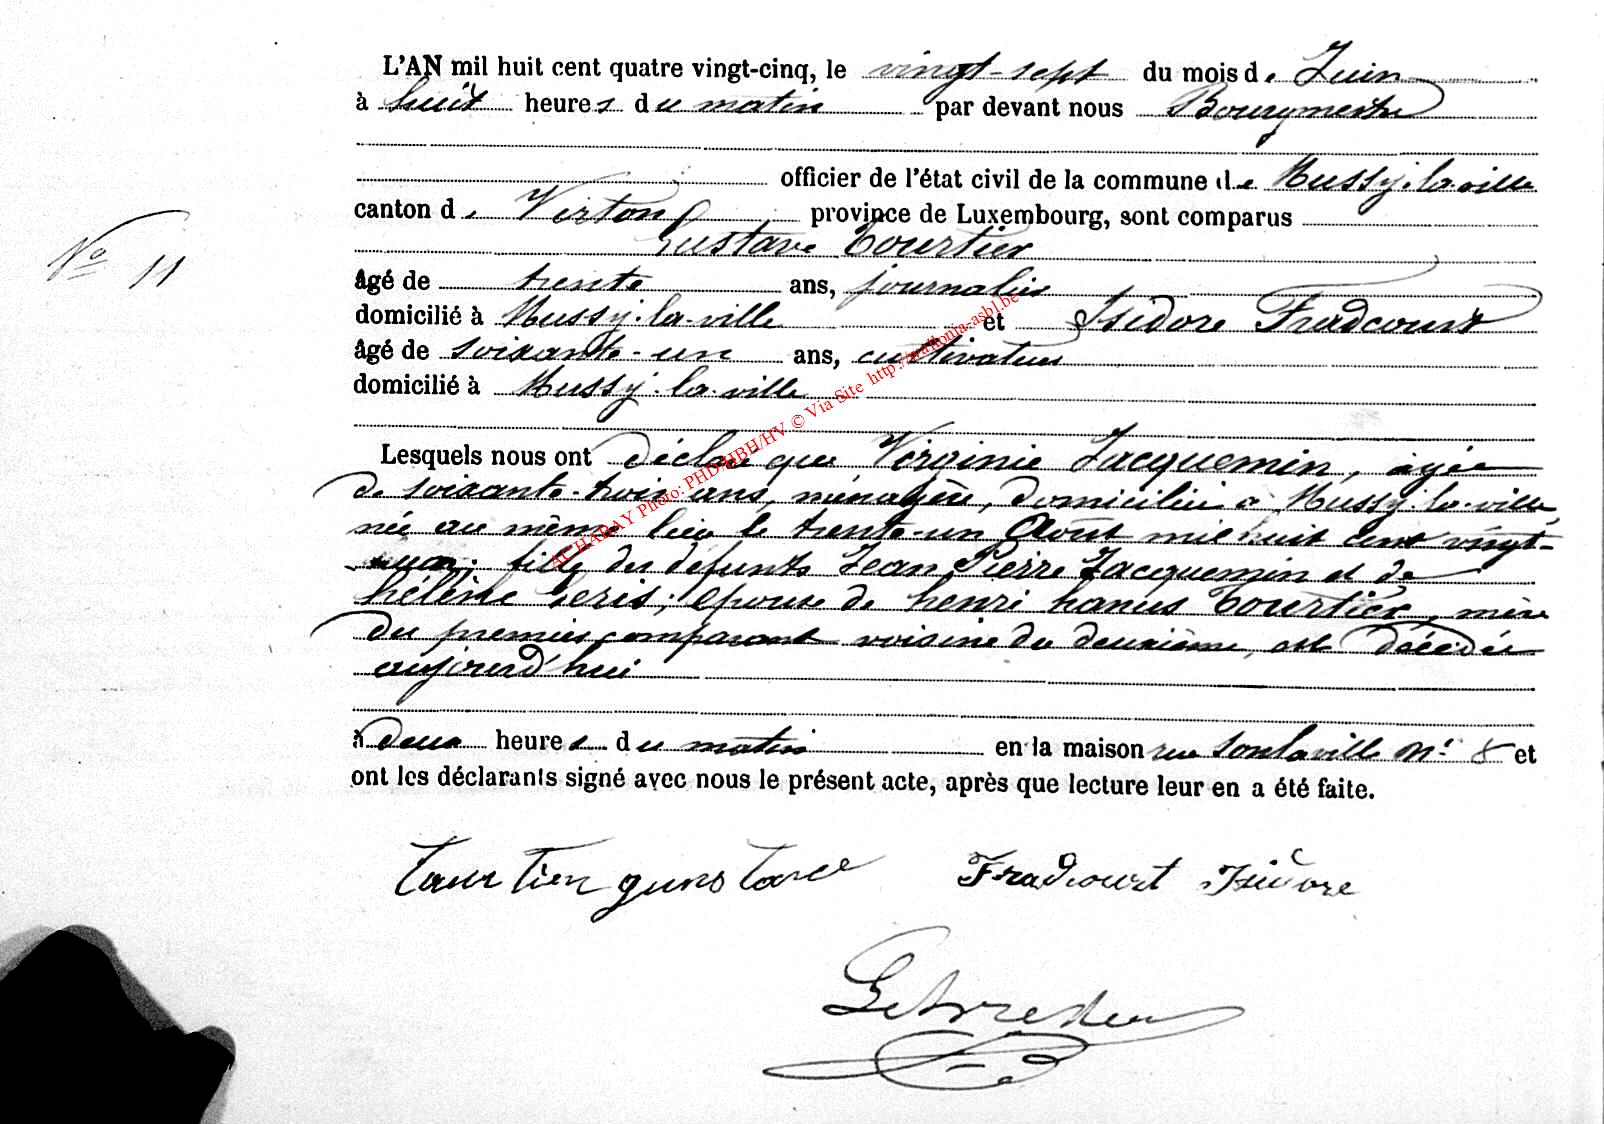 L'AN mil huit cent quatre vingt-cinq, le vingt-sept du mois de Juin
à huit heures du matin par devant nous Bourgmestre
officier de l'état civil de la commune de Mussy-la-ville
canton de Virton province de Luxembourg, sont comparus
Gustave Tourtier
No 11
âgé de trente ans, journalier
domicilié à Mussy-la-ville et Isidore Fradcourt
âgé de soixante-un ans, cultivateur
domicilié à Mussy-la-ville
Lesquels nous ont déclaré que Virginie Jacquemin, agée
de soixante-trois ans, ménagère, domiciliée à Mussy-la-ville,
née au même lieu le trente-un Août mil huit cent vingt-
un; fille des défunts Jean Pierre Jacquemin et de
hélène Geris; épouse de henri hanus Tourtier, mère
du premier comparant voisine du deuxième, est décédée
aujourd'hui
à deux heures du matin en la maison rue Sonlaville No 8 et
ont les déclarants signé avec nous le présent acte, après que lecture leur en a été faite.
Fradcourt Isidore
ACHARAY Photo: PHD/HBH/HV © Via Site http://wallonia-asbl.be